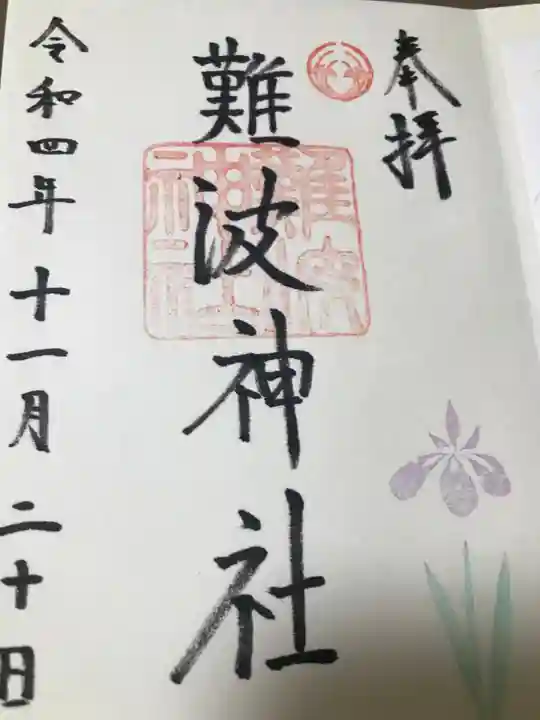 奉拝
難波神社
令和四年十一月二十日